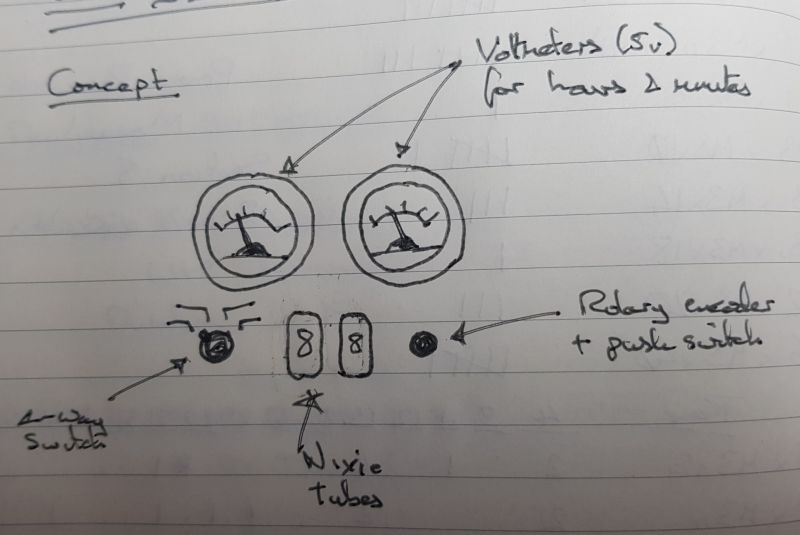 Concept
Voltmeters (5v)
for hours & minutes
8 8
Rotary encoder
+ push switch
4-way
Switch
Nixie
tubes